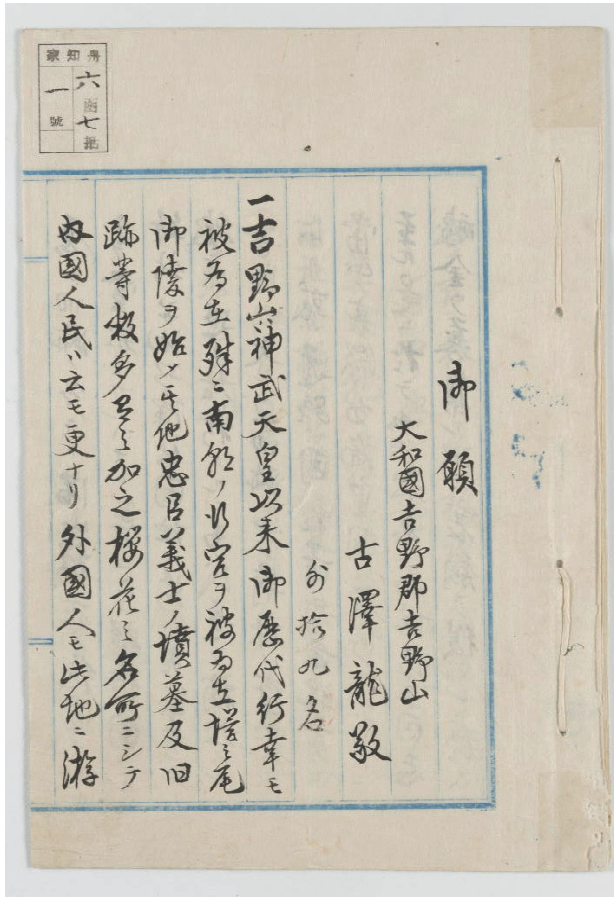 舟知家
六函七號
一號
御願
大和國吉野郡吉野山
古澤龍敬
外拾九名
一吉野山神武天皇以来御歴代行幸モ
被為在殊ニ南朝ノ行宮ヲ被為立塔之尾
御陵ヲ始メ其他忠臣義士ノ墳墓及旧
跡等数多有之加之桜花之名所ニシテ
内國人民ハ云モ更ナリ外國人モ此地ニ游